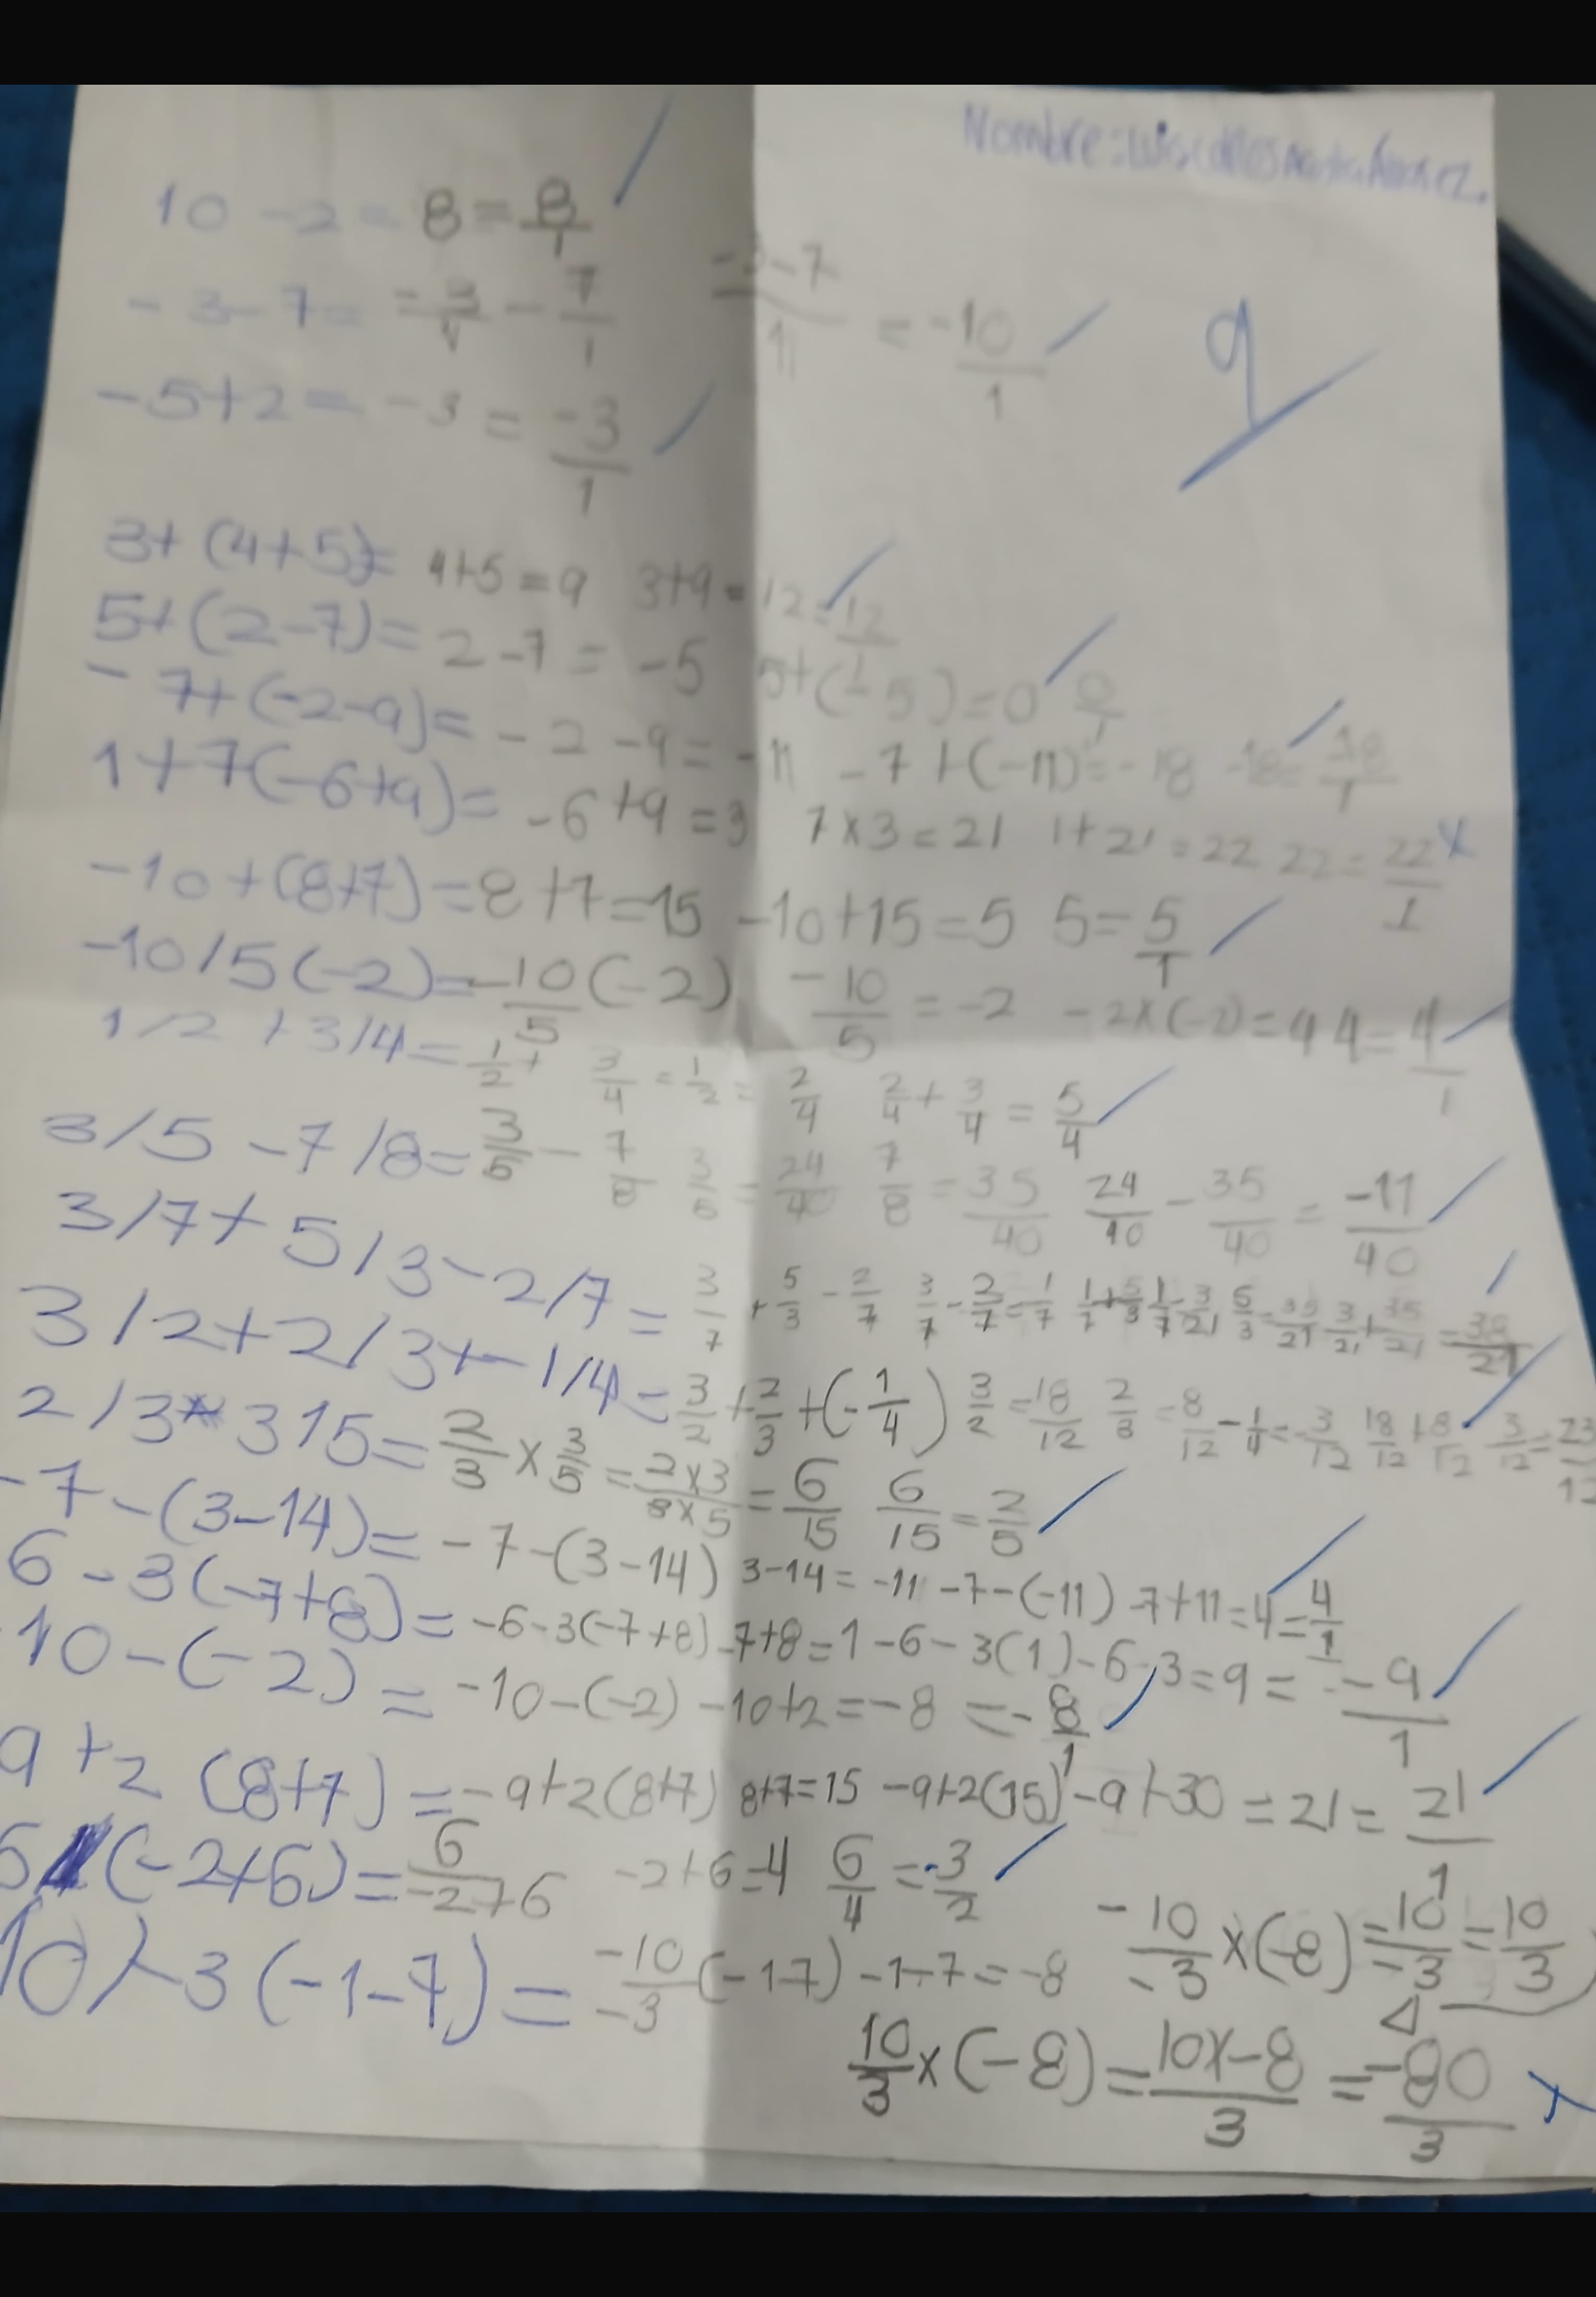 Nombre:
10 - 2 = 8 = 8/1
- 3 - 7 = -3/1 - 7/1 -3-7/11 = -10/1
9
-5+2 = -3 = -3/1
3+ (4+5)= 4+5=9 3+9=12=12/1
5+(2-7)= 2-7 = -5 5+(-5)=0 0/1
-7+(-2-9)= -2-9= -11 -7+(-11)=-18 -18= -18/1
1+7(-6+9)= -6+9=3 7x3=21 1+21=22 22=22/1 x
-10+(8+7)=8+7=15 -10+15=5 5=5/1
-10/5(-2)=-10/5(-2) -10/5 = -2 -2x(-2)=4 4=4/1
1/2 +3/4=1/2+ 3/4 =1/2= 2/4 2/4+3/4=5/4
3/5 -7/8=3/5- 7/8 3/5=24/40 7/8=35/40 24/40-35/40=-11/40
3/7+5/3-2/7= 3/7+5/3-2/7 3/7-2/7=1/7 1/7+5/3 1/7=3/21 5/3=35/21 3/21+35/21=38/21
3/2+2/3+-1/4=3/2+2/3+(-1/4) 3/2=18/12 2/3=8/12 -1/4=-3/12 18/12+8/12-3/12=23/12
2/3*3/5=2/3x3/5=2x3/3x5=6/15 6/15=2/5
-7-(3-14)= -7-(3-14) 3-14=-11 -7-(-11) -7+11=4=4/1
6-3(-7+8)= -6-3(-7+8)-7+8=1 -6-3(1)-6-3=9= -9/1
10-(-2)= -10-(-2) -10+2=-8 =-8/1
9+2(8+7)=-9+2(8+7) 8+7=15 -9+2(15) -9+30=21=21/1
6/(-2+6)=6/-2+6 -2+6=4 6/4=3/2
10/-3(-1-7)= -10/-3(-1-7) -1-7=-8 -10/-3x(-8)=-10/-3=10/3
10/3x(-8)=10x-8/3=-80/3 x